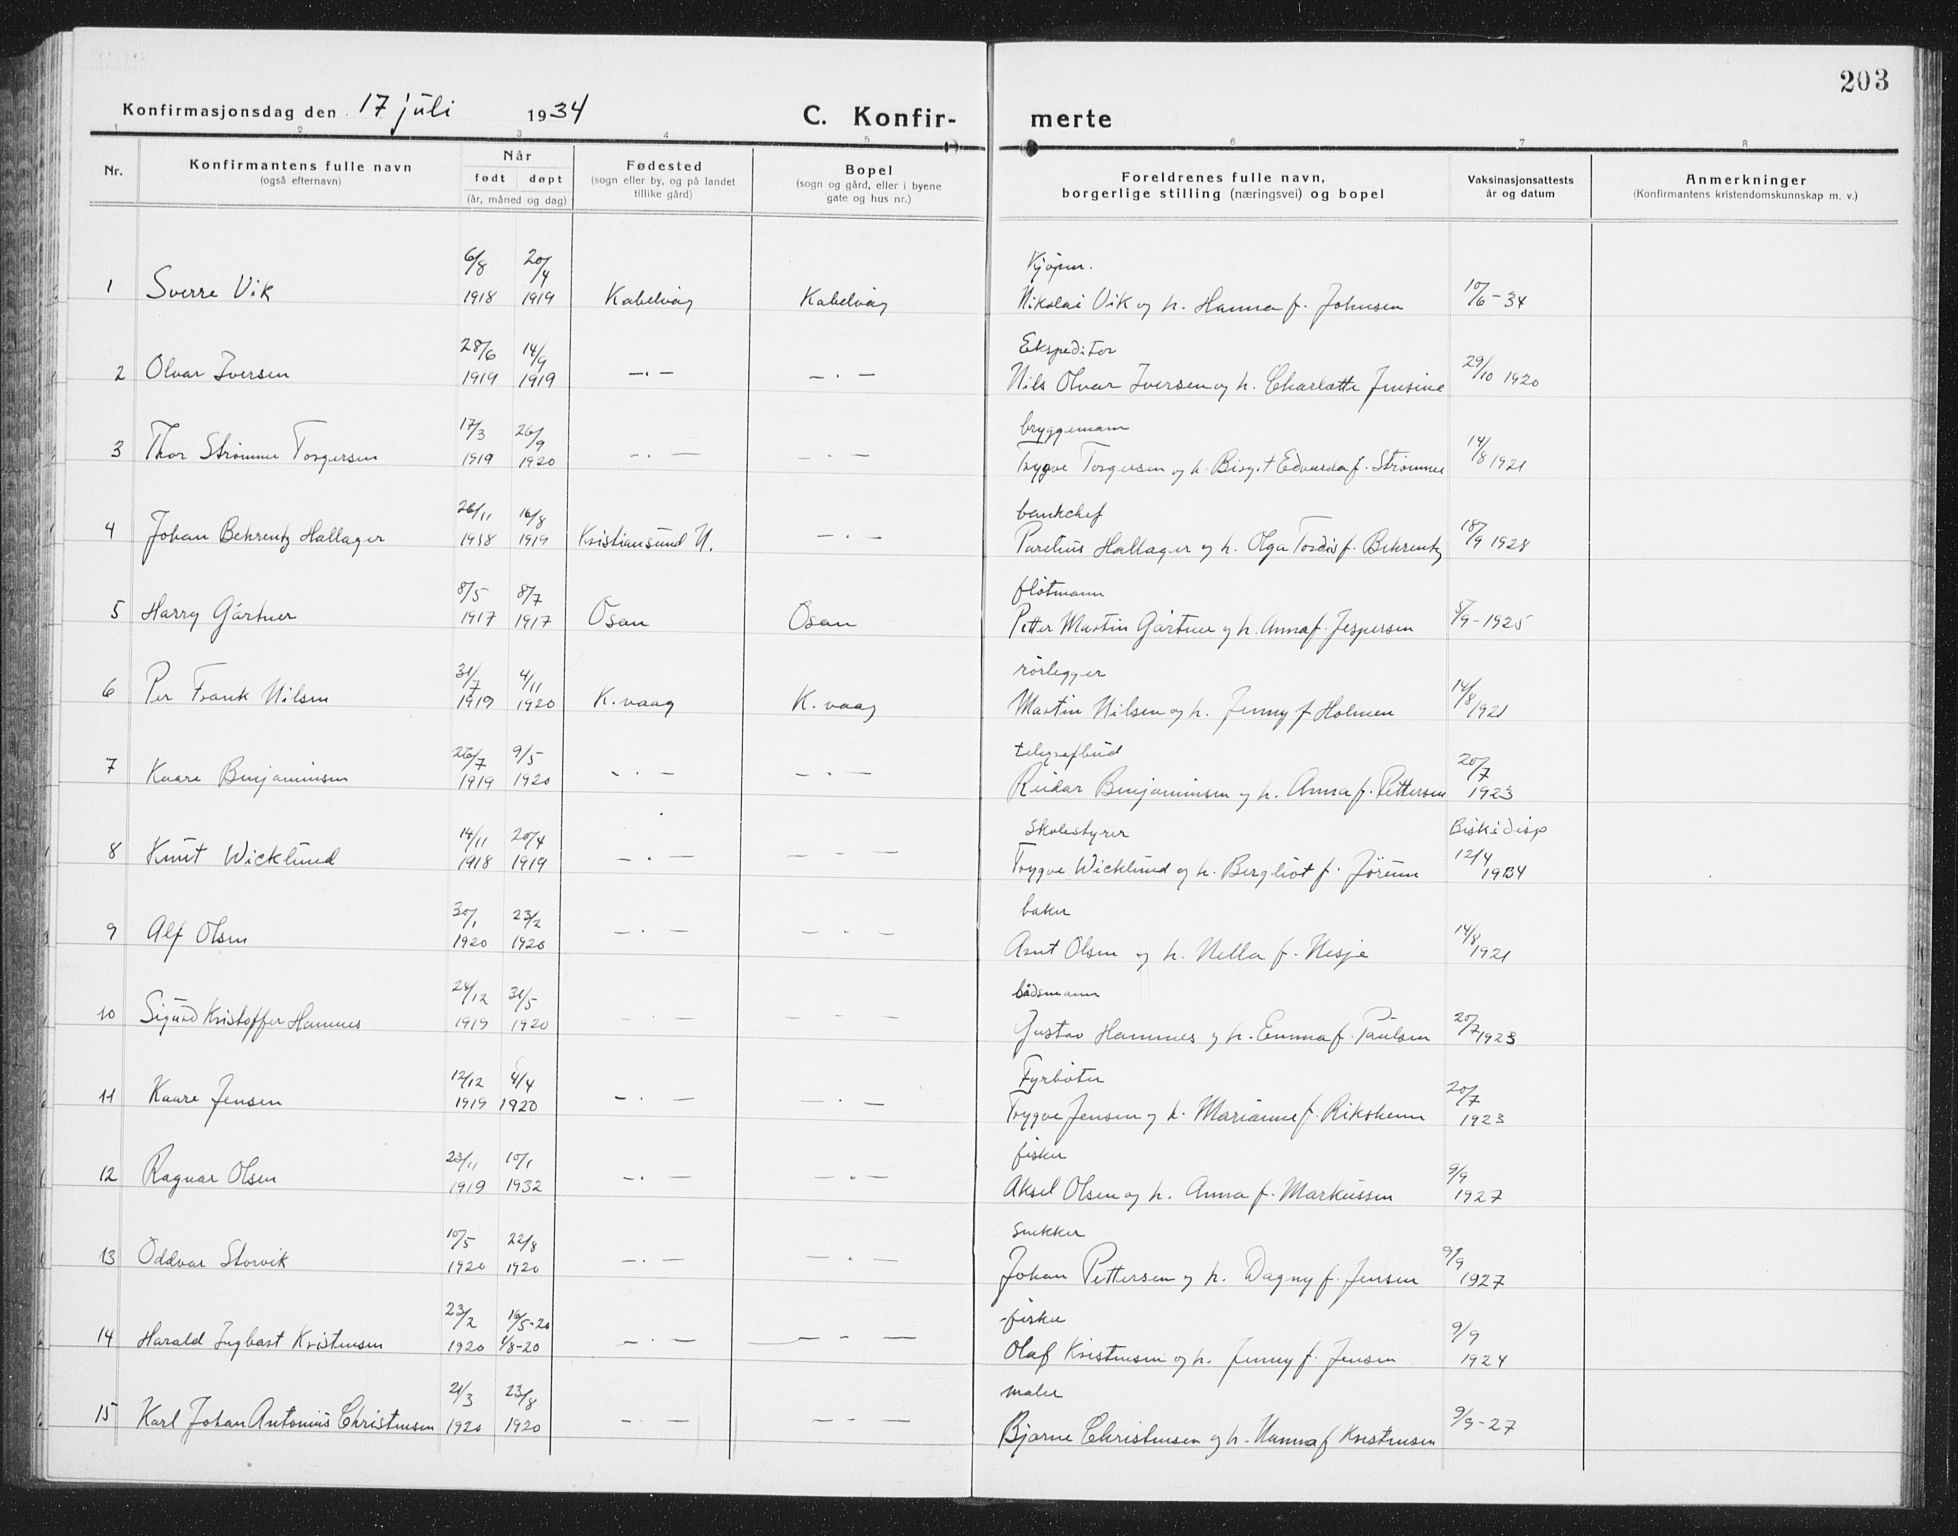 203
Konfirmasjonsdag den 17 juli 1934
C. Konfir-
merte
1 2 3 4 5 6 7 8
Nr. Konfirmantens fulle navn (også efternavn) Når født døpt (år, måned og dag) Fødested (sogn eller by, og på landet tillike gård) Bopel (sogn og gård, eller i byene gate og hus nr.) Foreldrenes fulle navn, borgerlige stilling (næringsvei) og bopel Vaksinasjonsattests år og datum Anmerkninger (Konfirmantens kristendomskunnskap m. v.)
6/8 20/4 Kjøpm.
1 Sverre Vik 1918 1919 Kabelvåg Kabelvåg Nikolai Vik og h. Hanna f. Johnsen 10/6-34
28/6 14/9 Ekspeditor
2 Olvar Iversen 1919 1919 —.— —.— Nils Olvar Iversen og h. Charlotte Jensine 29/10 1920
17/3 26/9 bryggemann
3 Thor Strømme Torgersen 1919 1920 —.— —.— Trygve Torgersen og h. Birgit Edvarda f. Strømme 14/8 1921
26/11 16/8 bankchef
4 Johan Behrentz Hallager 1918 1919 Kristiansund N. —.— Parelius Hallager og h. Olga Tordis f. Behrentz 18/9 1928
8/5 8/7 fløtmann
5 Harry Gårtner 1917 1917 Osan Osan Petter Martin Gårtner og h. Anna f. Jespersen 5/9-1925
31/7 4/11 rørlegger
6 Per Frank Nilsen 1919 1920 K.vaag K.vaag Martin Nilsen og h. Jenny f Holmen 14/8 1921
26/7 9/5 telegrafbud
7 Kaare Benjaminsen 1919 1920 —.— —.— Reidar Benjaminsen og h. Anna f. Pettersen 20/7 1923
14/11 20/4 Skolestyrer Bisk. disp
8 Knut Wicklund 1918 1919 —.— —.— Trygve Wicklund og h. Bergliot f. Jørum 12/4 1934
30/1 23/2 baker
9 Alf Olsen 1920 1920 —.— —.— Arnt Olsen og h. Nella f. Nesje 14/8 1921
24/12 31/5 bådsmann
10 Sigurd Kristoffer Hammes 1919 1920 —.— —.— Gustav Hammes og h. Emma f. Paulsen 20/7 1923
12/12 4/4 Fyrbøter
11 Kaare Jensen 1919 1920 —.— —.— Trygve Jensen og h. Marianne f. Riksheim 20/7 1923
23/11 10/1 fisker
12 Ragnar Olsen 1919 1932 —.— —.— Aksel Olsen og h. Anna f. Markussen 9/9 1927
10/5 22/8 snekker
13 Oddvar Storvik 1920 1920 —.— —.— Johan Pettersen og h. Dagny f. Jensen 9/9 1927
23/2 16/5-20 fisker
14 Harald Ingbart Kristensen 1920 1/8-20 —.— —.— Olaf Kristensen og h. Jenny f. Jensen 9/9 1924
21/3 23/8 maler
15 Karl Johan Antonius Christensen 1920 1920 —.— —.— Bjarne Christensen og h. Hanna f Kristensen 9/9-27